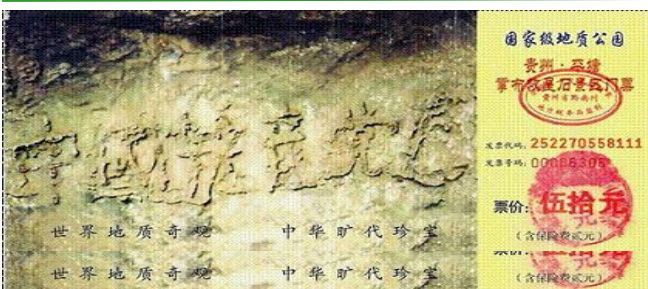 中國共產党亡
世界地质奇观 中华旷代珍宝
世界地质奇观 中华旷代珍宝
国家级地质公园
贵州·平塘
掌布救星石景区门票
贵州省黔南州
发票代码: 252270558111
发票号码: 00086305
票价: 伍拾元
(含保险费贰元)
(含保险费贰元)